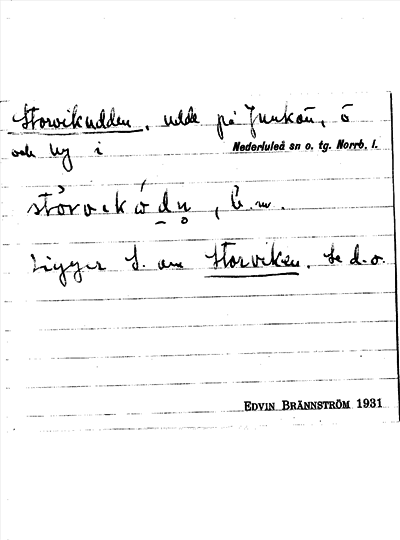 Storvikudden, udde på Junkön, ö
och by i Nederluleå sn o. tg. Norrb. l.
stòrvekódn̥, b. m.
Ligger S. om Storviken. Se d. o.
EDVIN BRÄNNSTRÖM 1931